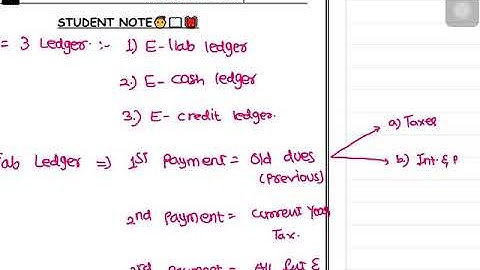 STUDENT NOTE
= 3 Ledger :- 1) E-liab ledger
2.) E- cash ledger
3.) E- credit ledger.
Ledger => 1st Payment = old dues
(Previous)
a) Taxes
b) Int. & P
2nd Payment = Current Year
Tax.
Payment = All